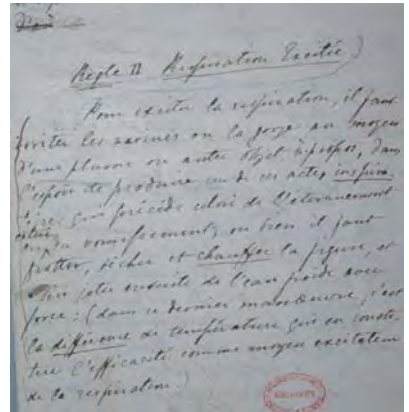 Règle II Respiration Excitée)
Pour exciter la respiration, il faut
irriter les narines ou la gorge au moyen
d'une plume ou autre objet à propos, dans
l'espoir de produire un de ces actes inspira-
toire, qui précède celui de l'éternuement
et du vomissement, ou bien il faut
frotter, sécher et chauffer la figure, et
jeter ensuite de l'eau froide avec
force : (dans ce dernier manœuvre, c'est
la différence de température qui en consti-
tue l'efficacité comme moyen excitateur
de la respiration.)